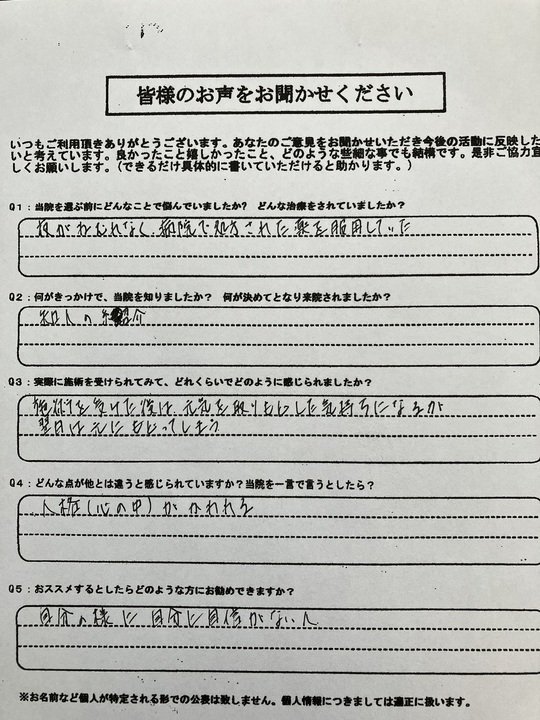 皆様のお声をお聞かせください
いつもご利用頂きありがとうございます。あなたのご意見をお聞かせいただき今後の活動に反映した
いと考えています。良かったこと嬉しかったこと、どのような些細な事でも結構です。是非ご協力宜
しくお願いします。(できるだけ具体的に書いていただけると助かります。)
Q1:当院を選ぶ前にどんなことで悩んでいましたか? どんな治療をされていましたか?
夜がねむれなく 病院で処方された薬を服用していた
Q2:何がきっかけで、当院を知りましたか? 何が決めてとなり来院されましたか?
知人の紹介
Q3:実際に施術を受けられてみて、どれくらいでどのように感じられましたか?
施術を受けた後は 元気を取りもどした気持ちになるが
翌日は元にもどってしまう
Q4:どんな点が他とは違うと感じられていますか?当院を一言で言うとしたら?
人格(心の中)が かわれる
Q5:おススメするとしたらどのような方にお勧めできますか?
自分の様に 自分に自信がない人
※お名前など個人が特定される形での公表は致しません。個人情報につきましては適正に扱います。